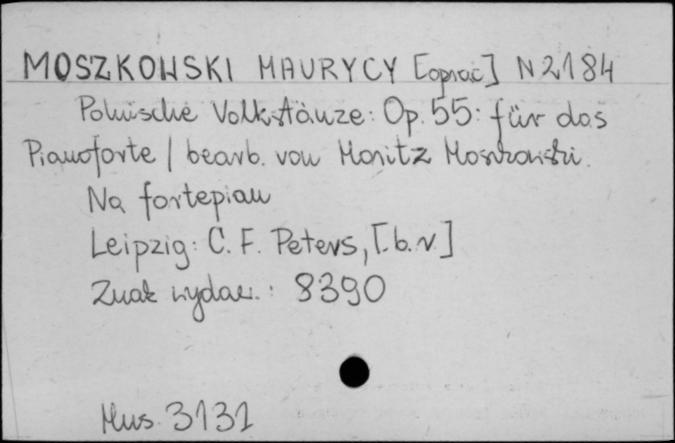 MOSZKOWSKI MAURYCY [oprac] N 2184
Polnische Volkstänze: Op. 55: für das
Pianoforte / bearb. von Moritz Moszkowski.
Na fortepian
Leipzig: C. F. Peters, [b. r.]
Znak wydaw.: 8390
Mus. 3131